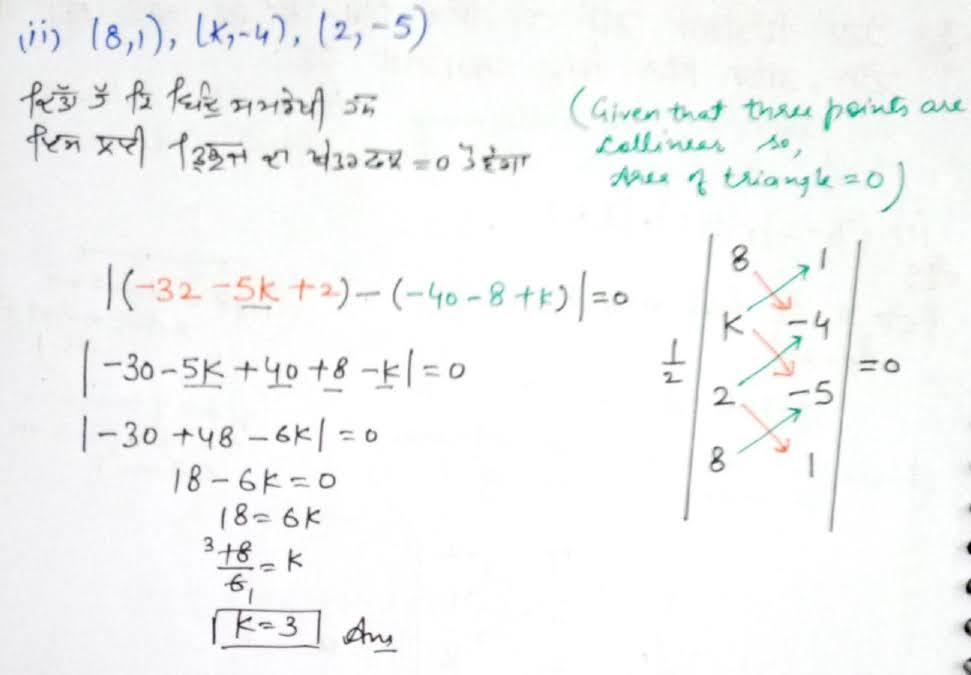 (ii) (8,1), (K,-4), (2,-5)
ਦਿੱਤਾ ਹੈ ਕਿ ਬਿੰਦੂ ਸਮਰੇਖੀ ਹਨ
ਇਸ ਲਈ ਤ੍ਰਿਭੁਜ ਦਾ ਖੇਤਰਫਲ = 0 ਹੋਵੇਗਾ
(Given that three points are
collinear so,
Area of triangle = 0)
|(-32 -5k +2) - (-40 -8 +k)| = 0
|-30 -5k +40 +8 -k| = 0
|-30 +48 -6k| = 0
18 - 6k = 0
18 = 6k
3 18/6 1 = k
k = 3 Ans
1/2 | 8 1
K -4
2 -5
8 1 | = 0